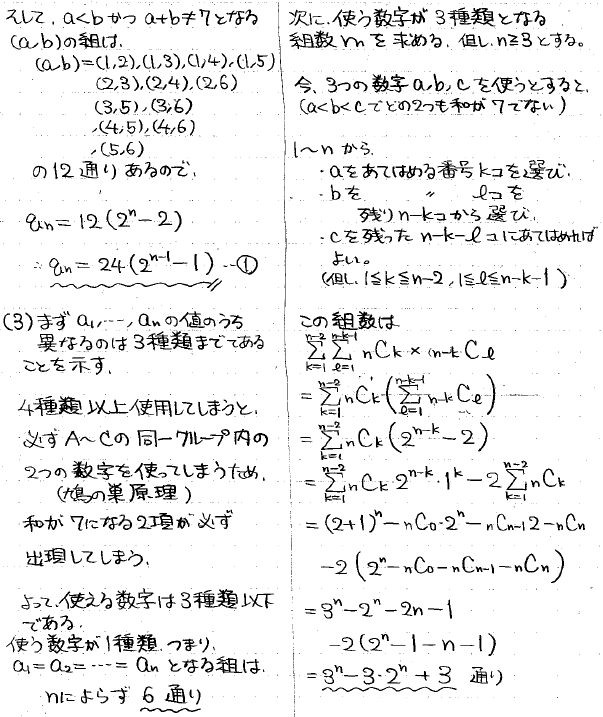 そして、a<bかつ a+b≠7となる
(a,b)の組は、
(a,b)=(1,2),(1,3),(1,4),(1,5)
(2,3),(2,4),(2,6)
(3,5),(3,6)
,(4,5),(4,6)
,(5,6)
の12通りあるので、
qn=12(2ⁿ-2)
∴ qn=24(2ⁿ⁻¹-1) …①
(3) まず a₁,…,anの値のうち
異なるのは3種類までである
ことを示す。
4種類以上使用してしまうと、
必ずA〜Cの同一グループ内の
2つの数字を使ってしまうため、
(鳩の巣原理)
和が7になる2項が必ず
出現してしまう。
よって、使える数字は3種類以下
である。
使う数字が1種類、つまり、
a₁=a₂=…=anとなる組は、
nによらず 6通り
次に、使う数字が3種類となる
組数mを求める。但し、n≧3とする。
今、3つの数字a,b,cを使うとすると、
(a<b<cでどの2つも和が7でない)
1〜nから、
・aをあてはめる番号kコを選び、
・bを 〃 ℓコを
残りn-kコから選び、
・cを残ったn-k-ℓコにあてはめれば
よい。
(但し、1≦k≦n-2, 1≦ℓ≦n-k-1)
この組数は
Σ[k=1,n-2] Σ[ℓ=1,n-k-1] nCk × n-kCℓ
=Σ[k=1,n-2] nCk・(Σ[ℓ=1,n-k-1] n-kCℓ)
=Σ[k=1,n-2] nCk(2ⁿ⁻ᵏ-2)
=Σ[k=1,n-2] nCk・2ⁿ⁻ᵏ・1ᵏ-2Σ[k=1,n-2] nCk
=(2+1)ⁿ-nC₀・2ⁿ-nCn-1 2-nCn
-2(2ⁿ-nC₀-nCn-1-nCn)
=3ⁿ-2ⁿ-2n-1
-2(2ⁿ-1-n-1)
=3ⁿ-3・2ⁿ+3 通り